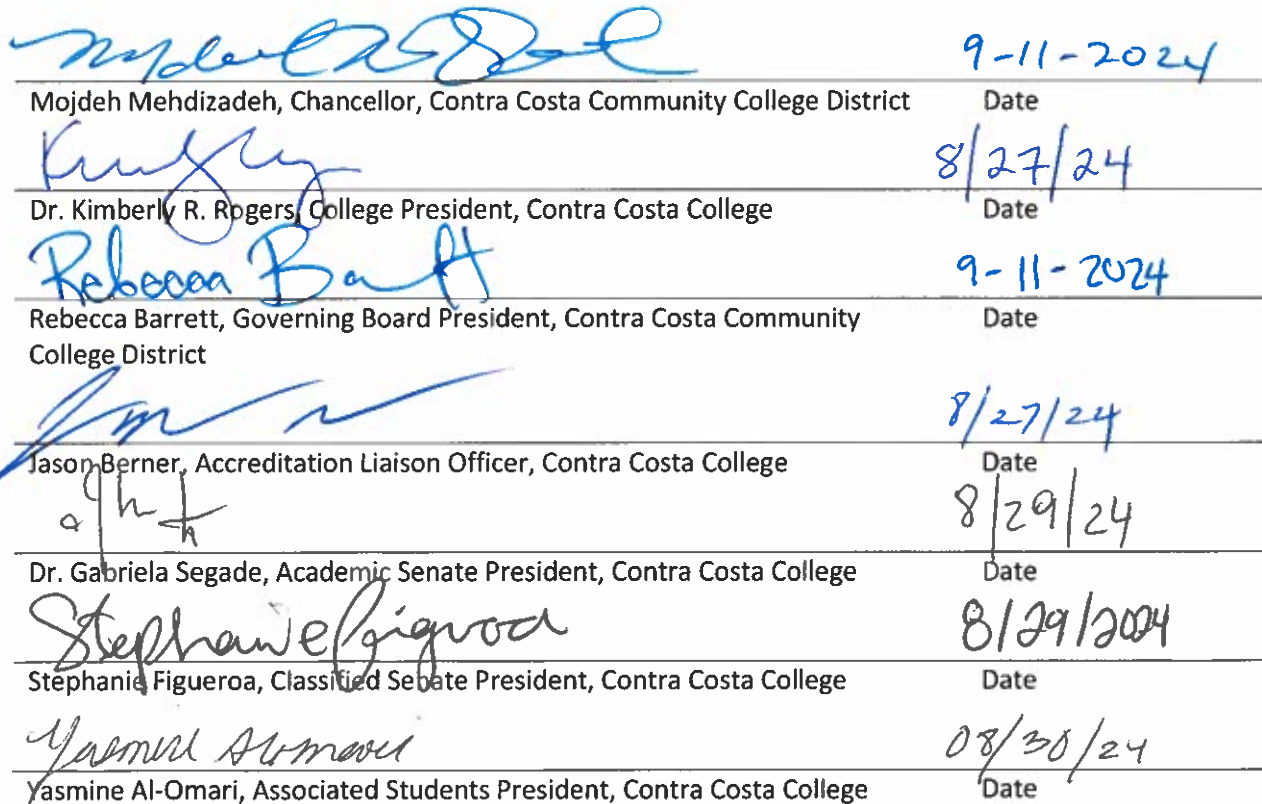 9-11-2024
Mojdeh Mehdizadeh, Chancellor, Contra Costa Community College District Date
8/27/24
Dr. Kimberly R. Rogers, College President, Contra Costa College Date
Rebecca Barrett 9-11-2024
Rebecca Barrett, Governing Board President, Contra Costa Community Date
College District
8/27/24
Jason Berner, Accreditation Liaison Officer, Contra Costa College Date
8/29/24
Dr. Gabriela Segade, Academic Senate President, Contra Costa College Date
Stephanie Figueroa 8/29/2024
Stephanie Figueroa, Classified Senate President, Contra Costa College Date
Yasmine Alomari 08/30/24
Yasmine Al-Omari, Associated Students President, Contra Costa College Date